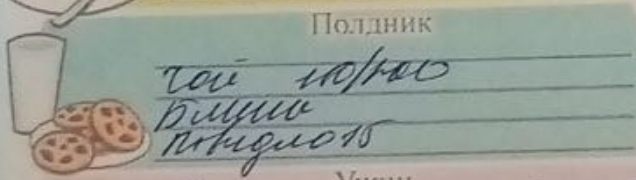 Полдник
чай
блины
повидло 15
Ужин